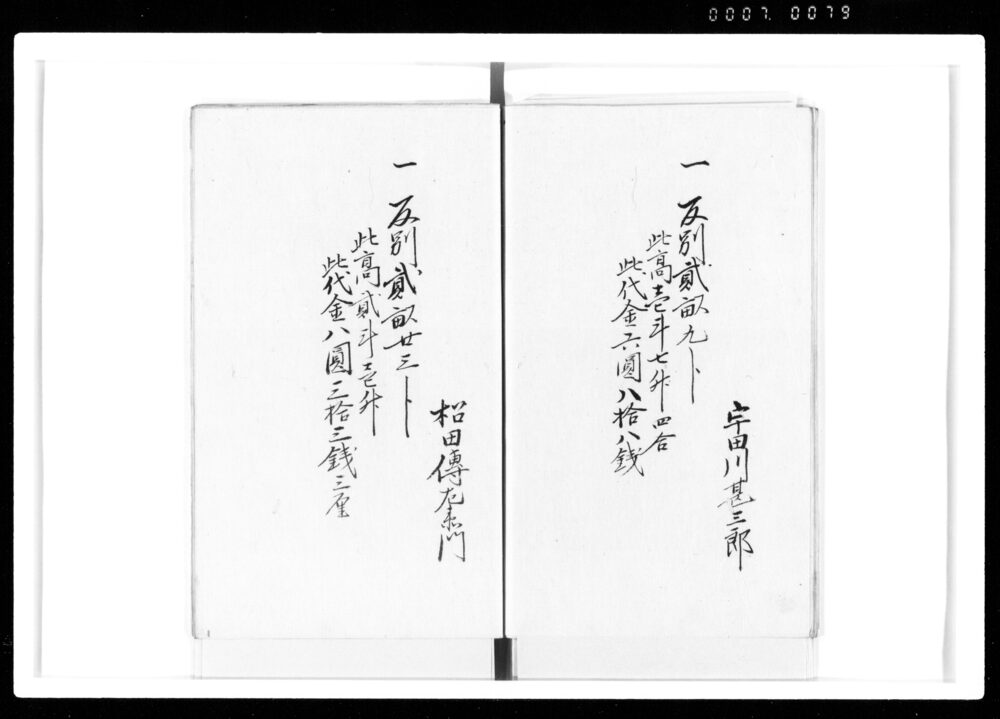 0007.0079
宇田川甚三郎
一 反別貳畝九卜
此高壱斗七升四合
此代金六圓八拾八銭
松田傳左衛門
一 反別貳畝廿三卜
此高貳斗壱升
此代金八圓三拾三銭三厘